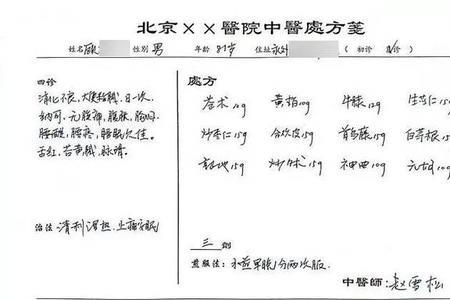 北京××醫院中醫處方箋
姓名 顾 性別 男 年齡 87岁 住址 永外 (初诊 诊)
四诊
消化不良,大便稀溏,日一次,
纳可,无腹痛,腹胀,胸闷,
腰酸,腰疼,睡眠欠佳。
舌红,苔黄腻,脉滑。
治法 清利湿热,止痛安眠
處方
苍术12g 黄柏10g 牛膝12g 生苡仁15g
炒枣仁15g 合欢皮15g 首乌藤15g 白茅根15g
15g 炒 15g 10g 元胡10g
三 劑
煎服法: 水煎 分两次服.
中醫師: 赵雪松